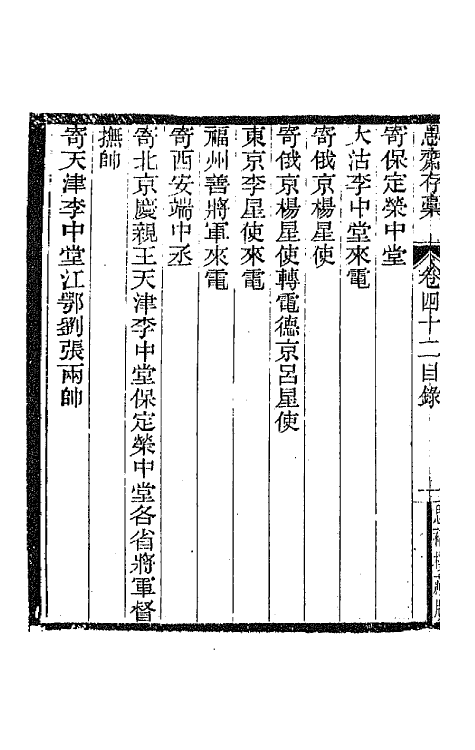 愚齋存稾 卷四十二目錄 思補樓藏版
寄保定榮中堂
大沽李中堂來電
寄俄京楊星使
寄俄京楊星使轉電德京呂星使
東京李星使來電
福州善將軍來電
寄西安端中丞
寄北京慶親王天津李中堂保定榮中堂各省將軍督
撫帥
寄天津李中堂江鄂劉張兩帥